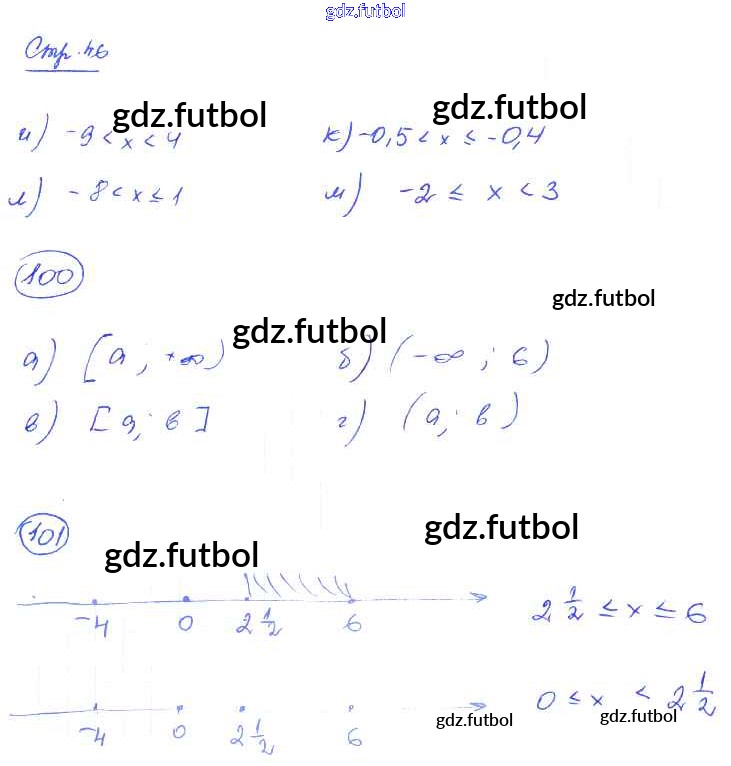 gdz.futbol
Стр. 46
gdz.futbol gdz.futbol
и) -9 < x < 4 к) -0,5 < x ≤ -0,4
л) -8 < x ≤ 1 м) -2 ≤ x < 3
100
gdz.futbol
gdz.futbol
а) [a; +∞) б) (-∞; б)
в) [a; в] г) (a; в)
101
gdz.futbol gdz.futbol
-4 0 2 1/2 6 2 1/2 ≤ x ≤ 6
0 ≤ x < 2 1/2
gdz.futbol gdz.futbol
-4 0 2 1/2 6